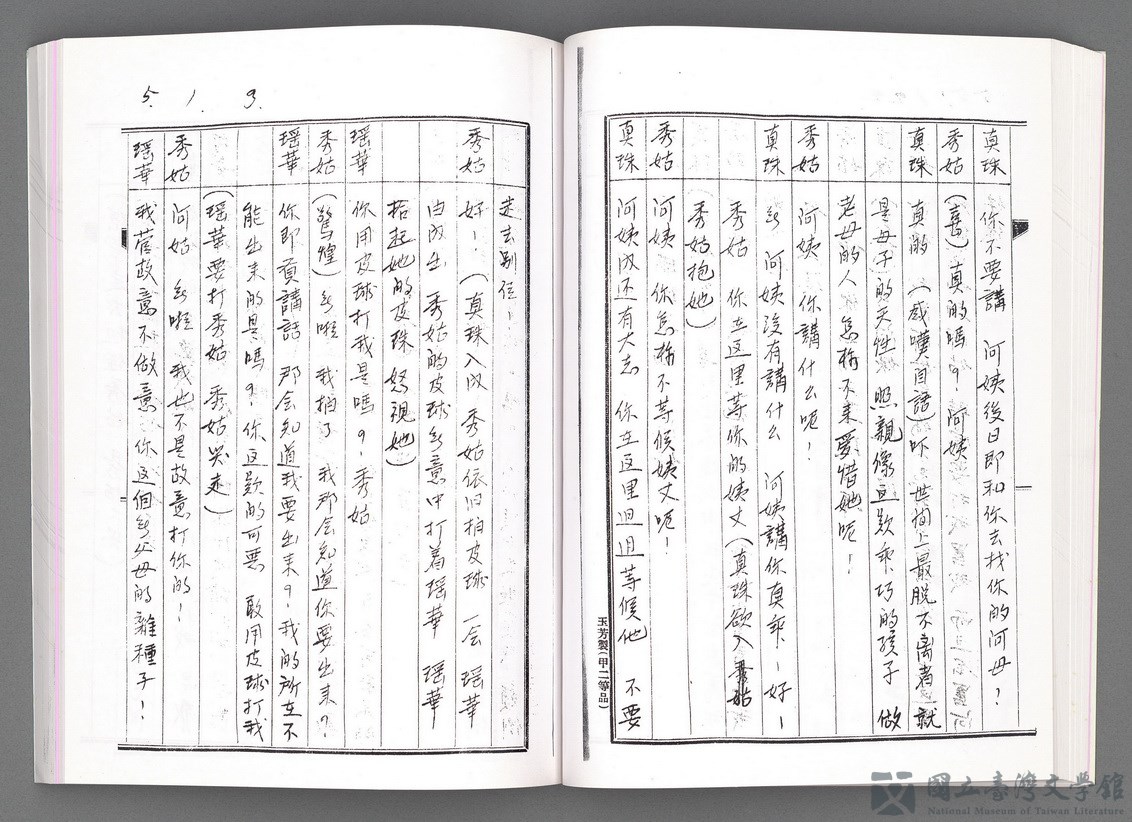 真珠 你不要講 阿姨後日即和你去找你的阿母!
秀姑 (喜)真的嗎?阿姨
真珠 真的 (感嘆自語)吓 世間上最脫不离者 就
是母子的天性 照親像這款乖巧的孩子 做
老母的人 怎樣不来愛惜她呢!
秀姑 阿姨 你講什么呢!
真珠 無 阿姨沒有講什么 阿姨講你真乖!好!
秀姑 你在这里等你的姨丈(真珠欲入 秀姑
秀姑抱她)
秀姑 阿姨 你怎樣不等候姨丈呢!
真珠 阿姨内还有大志 你在这里迌迌等候他 不要
玉芳製(甲二等品)
走去別位!
秀姑 好!(真珠入内 秀姑依旧拍皮球 一会 瑶華
由内出 秀姑的皮球無意中打着瑶華 瑶華
拾起她的皮珠 怒視她)
瑶華 你用皮球打我是嗎?秀姑
秀姑 (驚煌)無啦 我拍了 我那会知道你要出来?
瑶華 你即賀講話 那会知道我要出来?我的所在不
能出来的是嗎?你这款的可惡 敢用皮球打我
(瑶華要打秀姑 秀姑哭走)
秀姑 阿姑 無啦 我也不是故意打你的!
瑶華 我管故意不做意 你这個無父母的雜種子!
5. 1. 3.
國立臺灣文學館
National Museum of Taiwan Literature